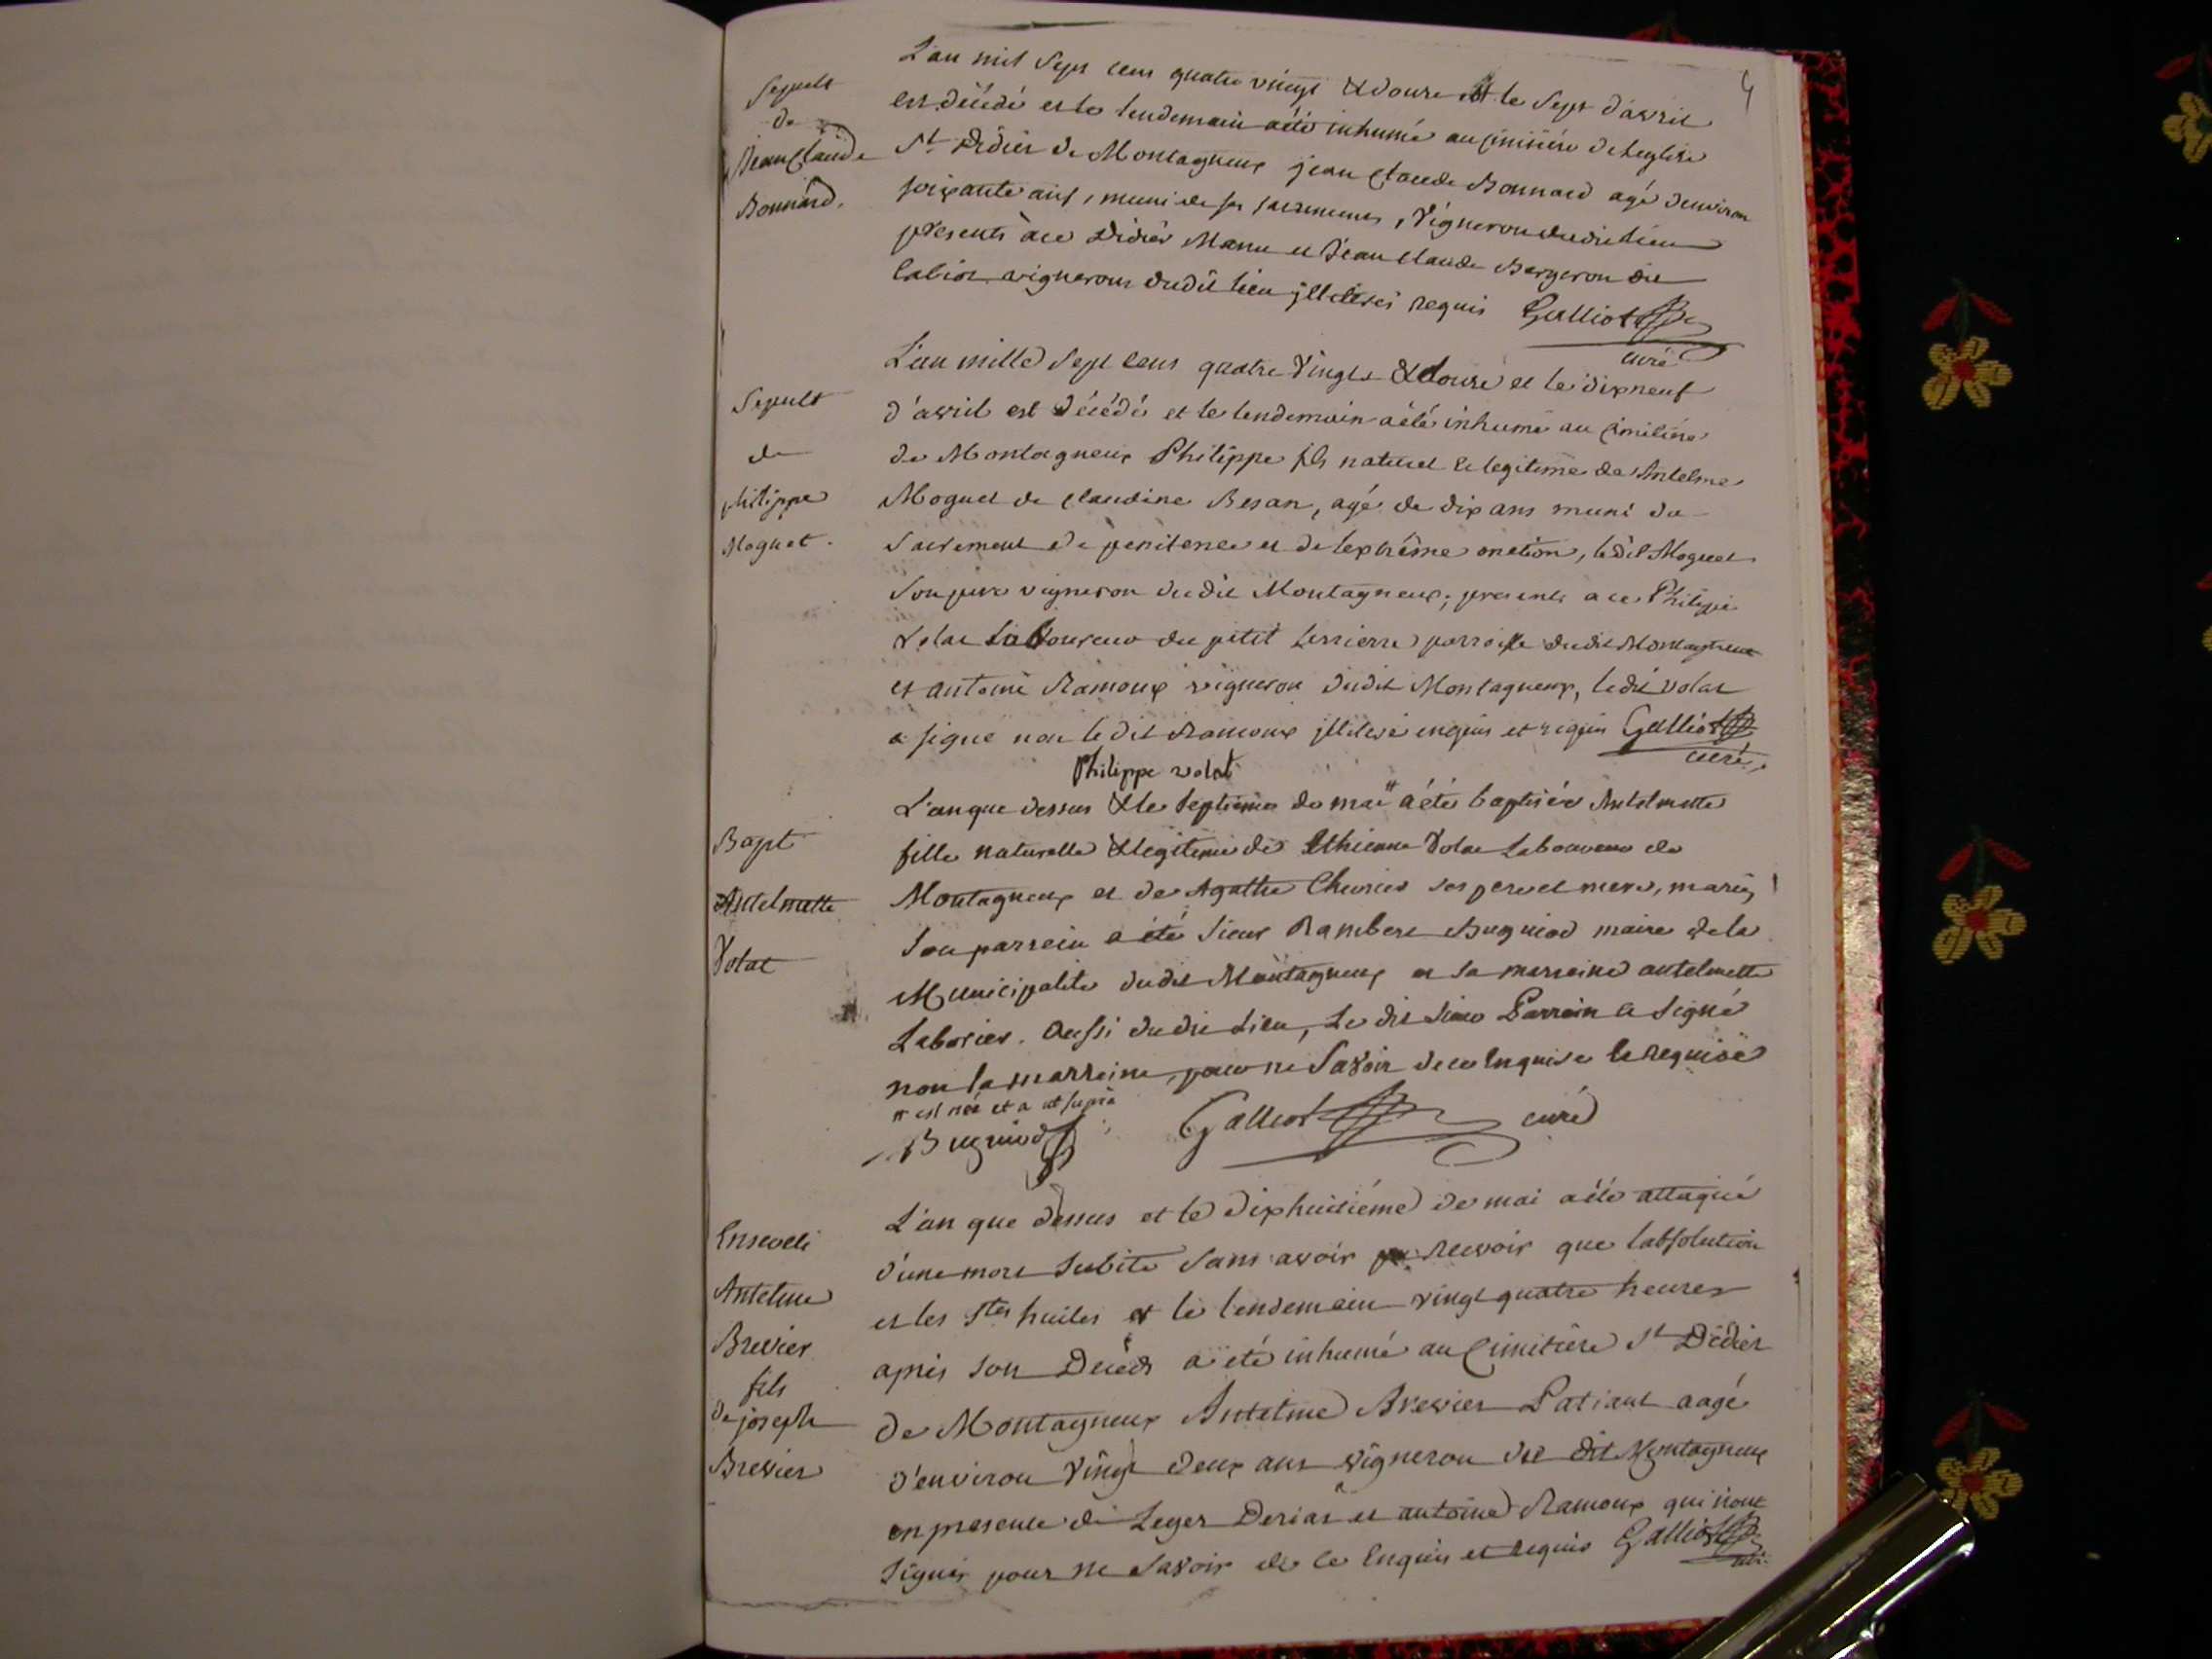 4
Sepult
de
Jean Claude
Bonnard.
L'an mil sept cens quatre vingt & douze et le sept d'avril
est décédé et le lendemain a été inhumé au cimitiére de leglise
St. Didier de Montagneux jean Claude Bonnard agé d'environ
soixante ans, muni de ses sacrements, Vigneron dudit lieu
presents à ce Didier Manu et Jean Claude Bergeron dit
vignerons dudit lieu illiterés requis Galliot
curé
Sepult
de
philippe
Moguet.
L'an mille sept cens quatre Vingts & douze et le dixneuf
d'avril est décédé et le lendemain a été inhumé au cimitiére
de Montagneux Philippe fils naturel & legitime de Antelme
Moguet de Claudine Besan, agé de dix ans muni du
Sacrement de penitence et de lextrême onction, ledit Moguet
son pere vigneron dudit Montagneux; presents a ce Philippe
Volat Laboureur du petit parroisse dudit Montagneux
et antoine Ramoux vigneron dudit Montagneux, ledit volat
a signé non le dit Ramoux illiteré enquis et requis Galliot
curé.
Philippe volat
Bapt
Antelmette
Volat
L'an que dessus & le septieme de mai # a été baptisée Antelmette
fille naturelle & legitime de Ethienne Volat Laboureur de
Montagneux et de Agathe Chevrier ses pere et mere, mariés
Son parrein a été Sieur Rambert Bugniod maire de la
Municipalité dudit Montagneux et sa marreine antelmette
Laborier. Aussi dudit Lieu, Le dit Sieur Parrein a Signé
non la marreine, pour ne Savoir de ce Enquise & Requise
# est née et a ut supra
Bugniod Galliot curé
Enseveli
Antelme
Brevier
fils
de joseph
Brevier
L'an que dessus et le dixhuitiéme de mai a été attaqué
d'une mort Subite Sans avoir pu recevoir que l'absolution
et les Stes huiles et le lendemain vingt quatre heures
après son Décés a été inhumé au Cimitiére St Didier
de Montagneux Antelme Brevier Patiant aagé
d'environ Vingt deux ans vigneron du dit Montagneux
en presence de Leger Derias et antoine Ramoux qui n'ont
Signés pour ne Savoir de ce Enquis et Requis Galliot
curé.